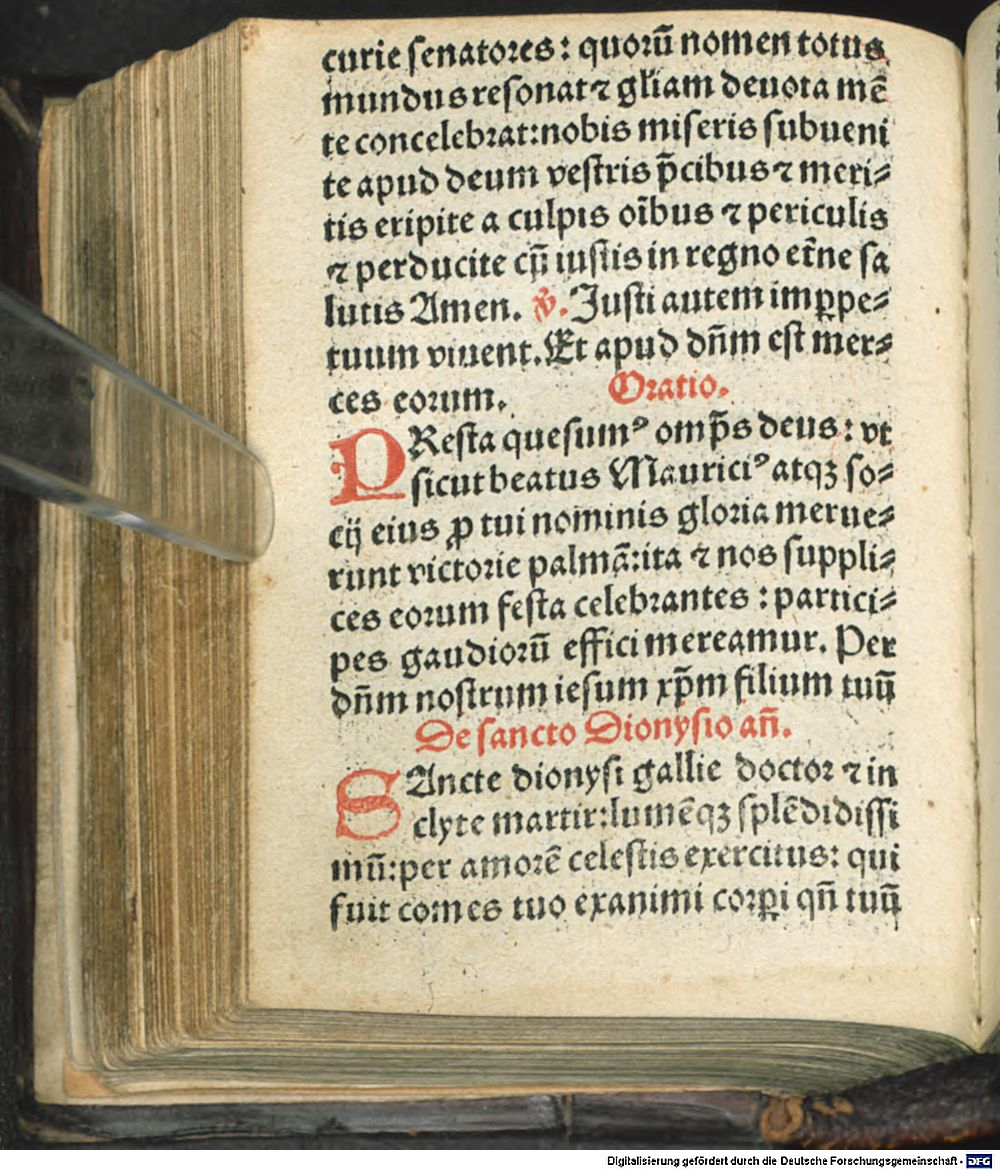 curie senatores: quorū nomen totus
mundus resonat ⁊ gl̄iam deuota mē
te concelebrat: nobis miseris subueni
te apud deum vestris p̄cibus ⁊ meri⸗
tis eripite a culpis oībus ⁊ periculis
⁊ perducite cū iustis in regno et̄ne sa
lutis Amen. ℣. Justi autem imꝑpe⸗
tuum viuent. Et apud dn̄m est mer⸗
ces eorum. Oratio.
PResta quesumꝰ omp̄s deus: vt
sicut beatus Mauriciꝰ atqꝫ so⸗
cij eius ꝓ tui nominis gloria merue⸗
runt victorie palmā: ita ⁊ nos suppli⸗
ces eorum festa celebrantes: partici⸗
pes gaudiorū effici mereamur. Per
dn̄m nostrum iesum xp̄m filium tuū
De sancto Dionysio an̄.
SAncte dionysi gallie doctor ⁊ in
clyte martir: lumēqꝫ splēdidissi
mū: per amorē celestis exercitus: qui
fuit comes tuo exanimi corꝑi qn̄ tuū
Digitalisierung gefördert durch die Deutsche Forschungsgemeinschaft - DFG